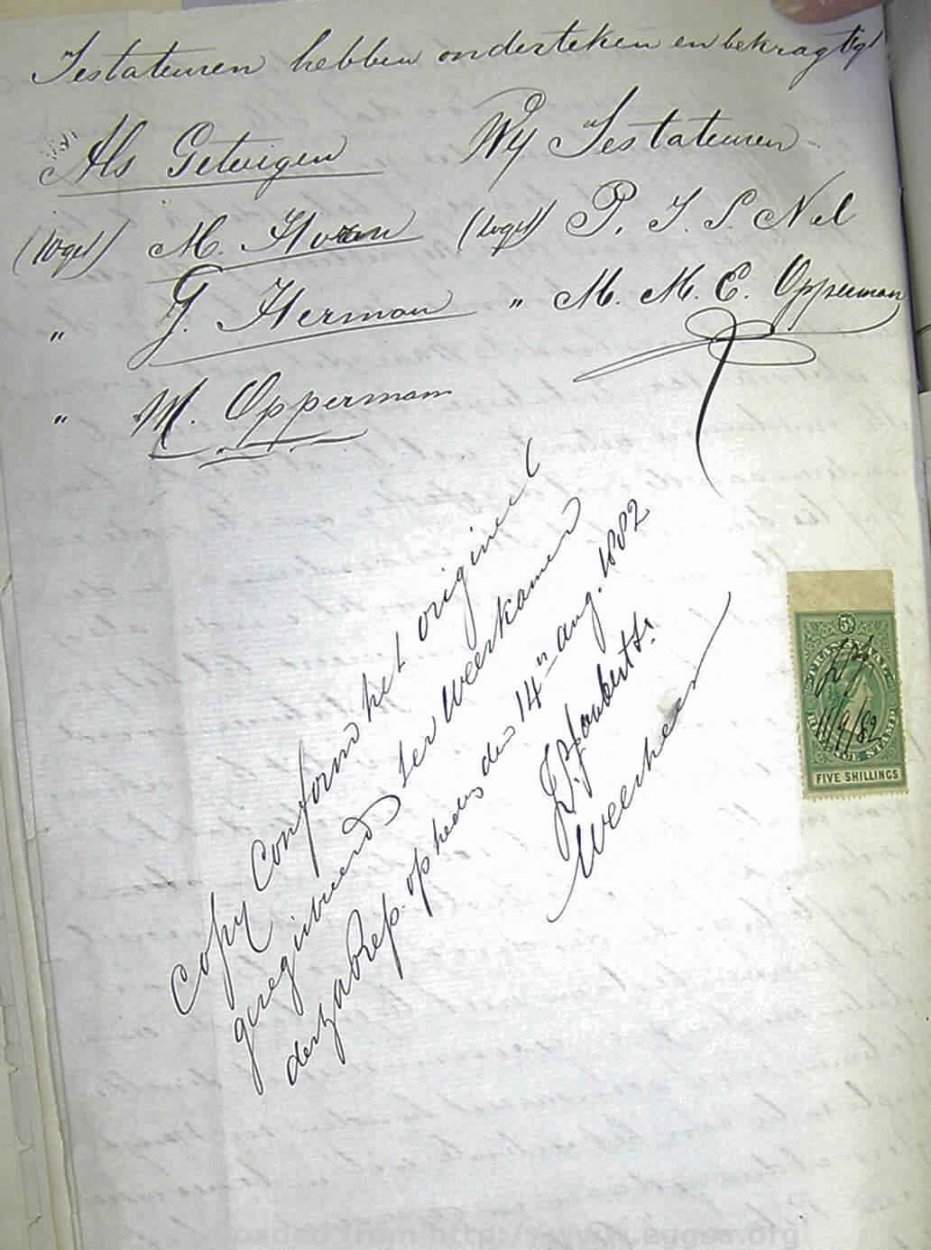 Testateuren hebben onderteken en bekragtigt
Als Getuigen Wy Testateuren
(Wogel) M. Horn (Wogel) P. J. S. Nel
" G. Herman " M. M. E. Opperman
" M. Opperman
Copy Conform het origineel
geregistreerd ter Weeskamer
der ZA Rep. op heden den 14n aug. 1882
Joubert Sr.
Weesheer
5/
TRANSVAAL
11/9/82
REVENUE STAMP
FIVE SHILLINGS